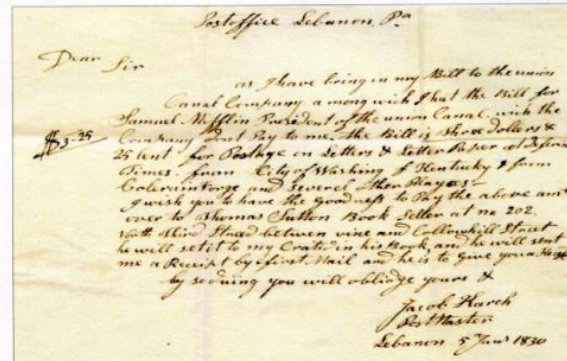 Postoffice Lebanon, Pa
Dear Sir
as I have bring in my Bill to the union
Canal Company a mong wich I hat the Bill for
Samuel Mifflin President of the union Canal. wich the
Company dont Pay to me. the Bill is three dollars &
$3-25
25 Cent for Postage on Letters & Letter Paper at
Times. from City of Washing & Kentucky & from
Colerain Forge and severel other
I wish you to have the goodness to Pay the above amt
over to Thomas Sutton Book Seller at no 202,
North Third Streed between vine and Callowhill Street
he will setit to my Cratid in his Book, and he will sent
me a Receipt by first Mail and he is to give you a
by so duing you will obliadge yours &
Jacob Karch
Post Master
Lebanon 5 Jan 1830